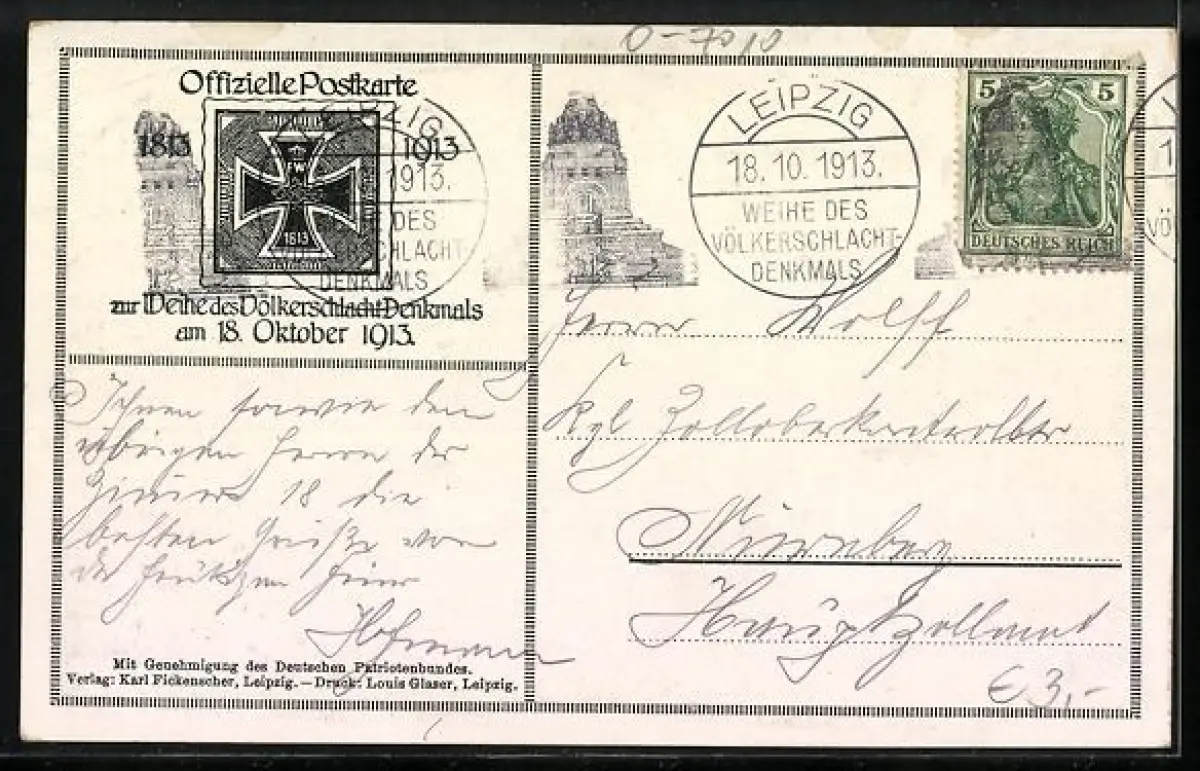 0-7010
Offizielle Postkarte
1813 1913
FW
1813
zur Weihe des Völkerschlacht-Denkmals
am 18. Oktober 1913.
LEIPZIG
1913.
DES
SCHLACHT-
DENKMALS
LEIPZIG
18.10.1913.
WEIHE DES
VÖLKERSCHLACHT-
DENKMALS
5 5
DEUTSCHES REICH
Ihnen sowie den
übrigen Herren der
Zimmer 18 die
besten Grüße von
der heutigen Feier
Hofmann
Herrn Wolff
Kgl Zolloberkontrolleur
Nürnberg
Hauptzollamt
Mit Genehmigung des Deutschen Patriotenbundes.
Verlag: Karl Fickenscher, Leipzig. — Druck: Louis Glaser, Leipzig.
€ 3,-